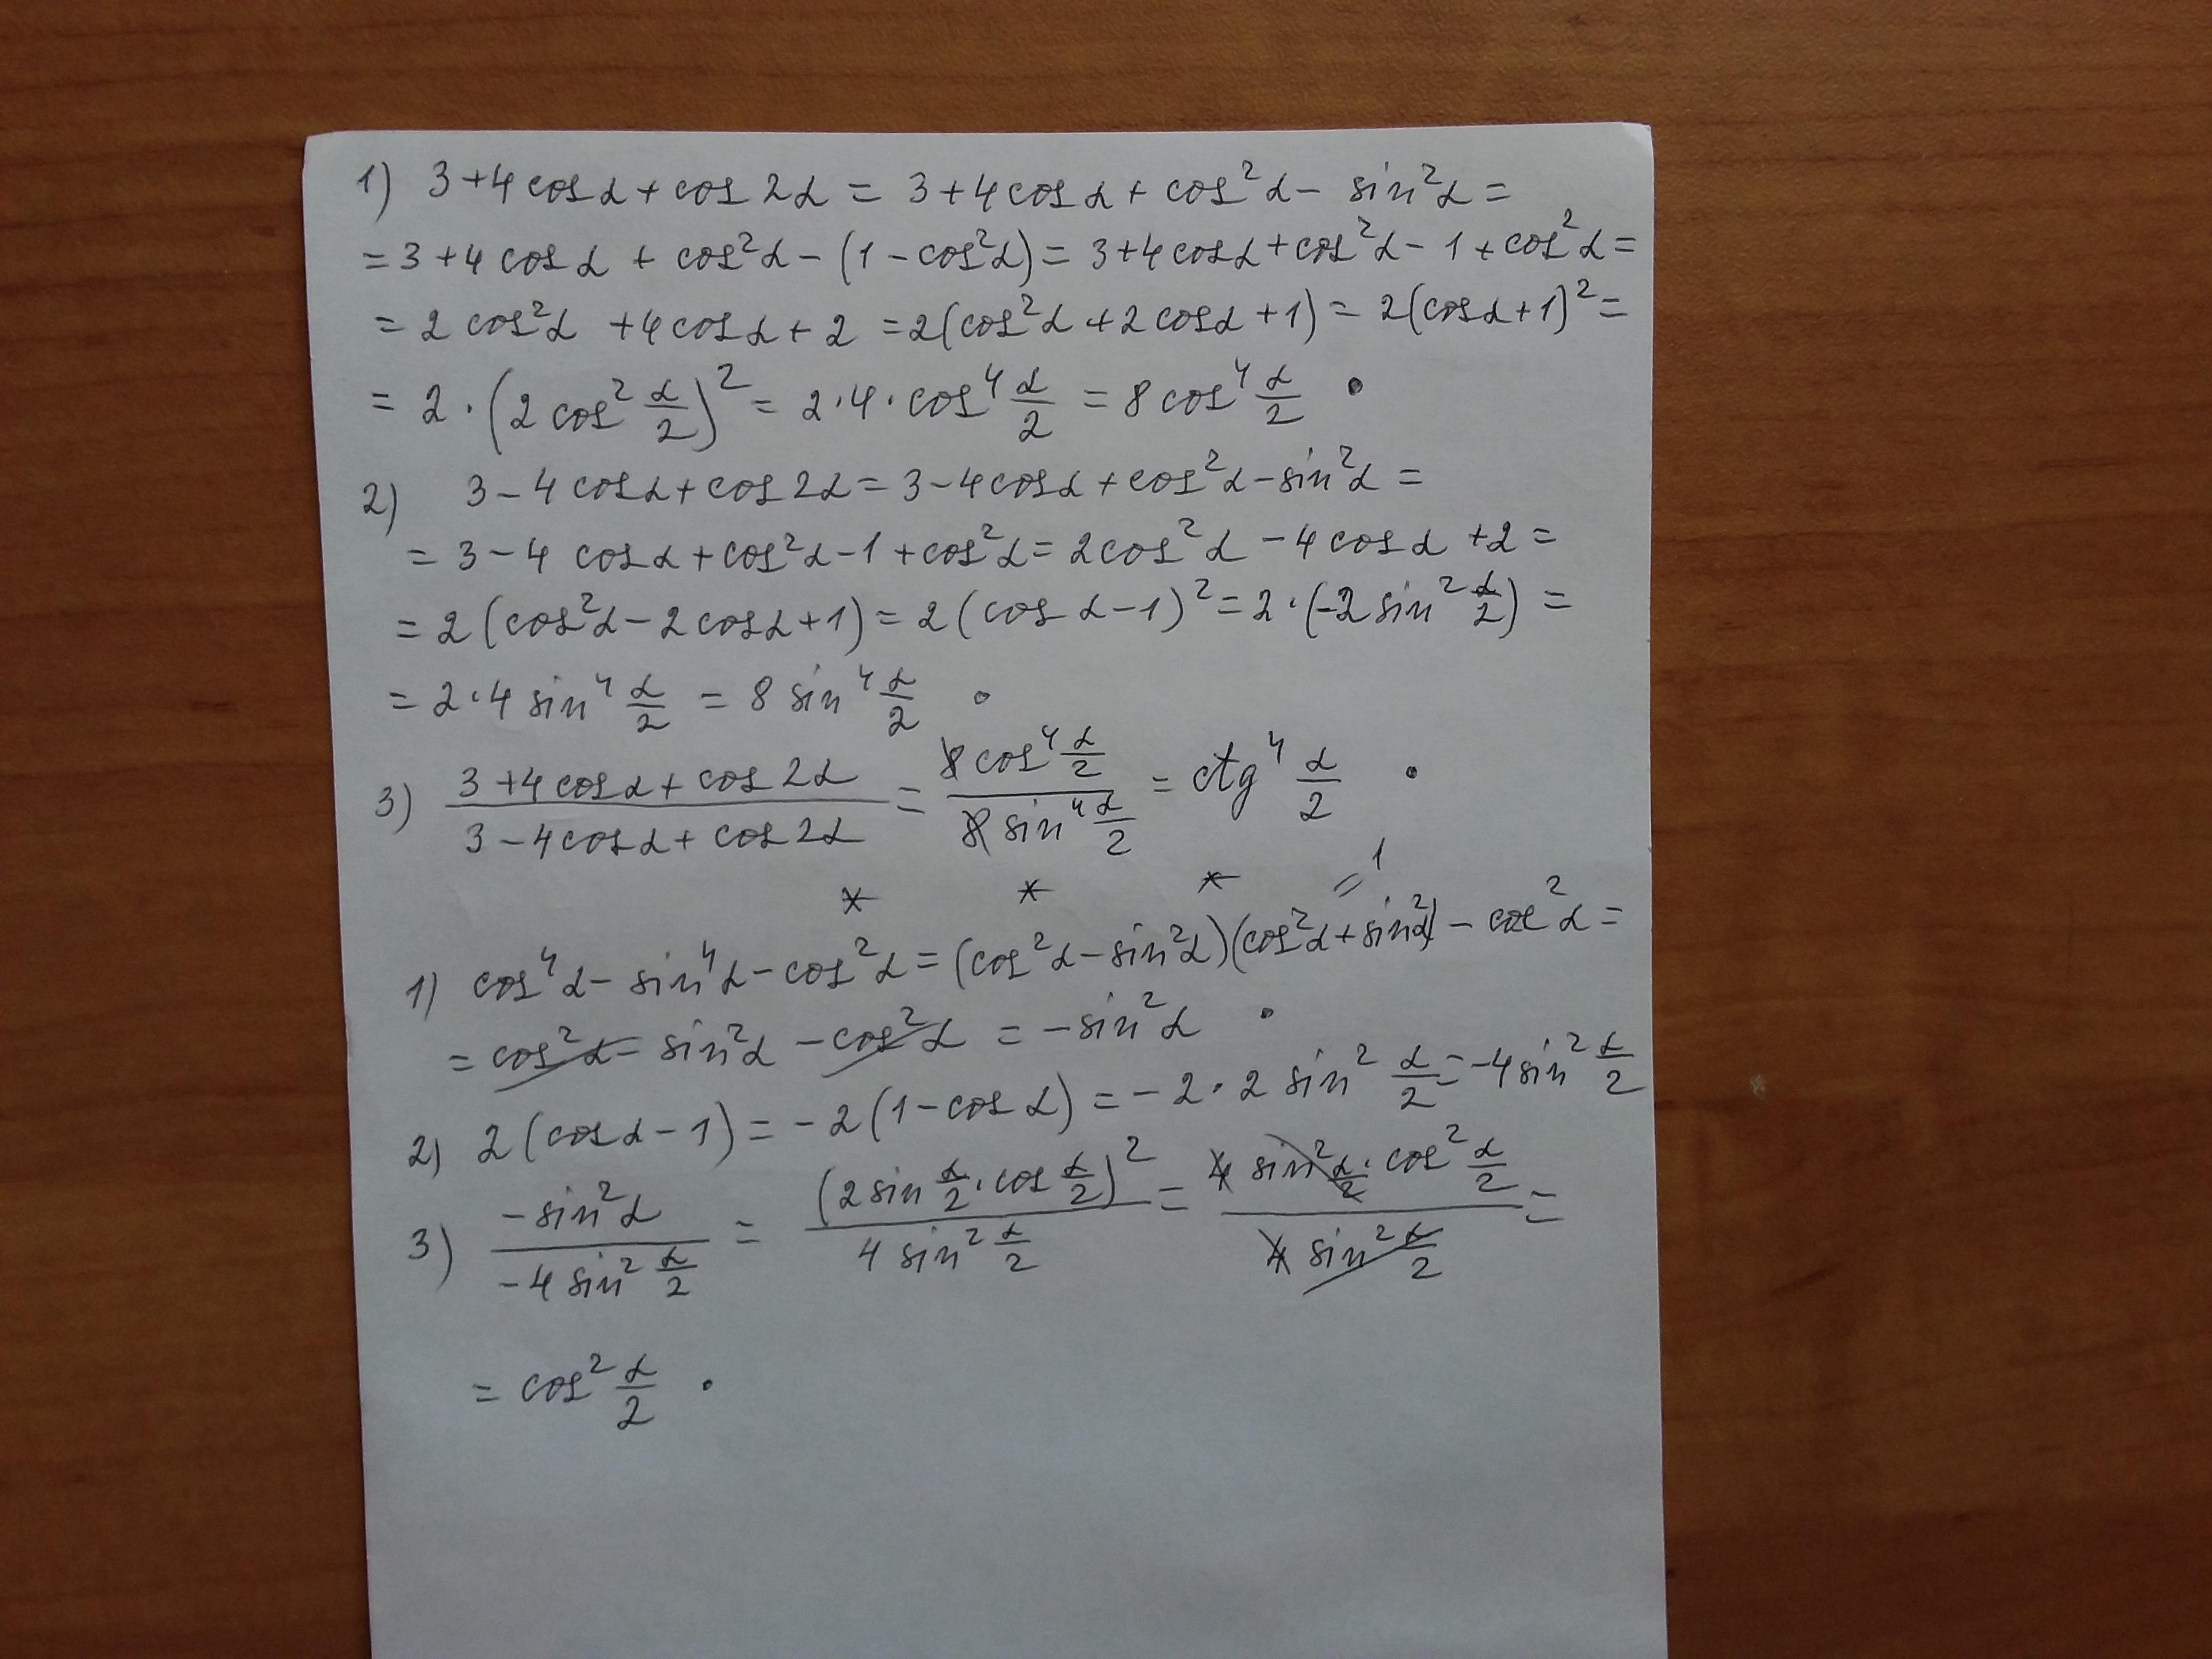 1) 3+4cosα+cos2α = 3+4cosα+cos²α− sin²α =
=3+4cosα + cos²α−(1−cos²α)= 3+4cosα+cos²α−1+cos²α=
= 2cos²α +4cosα+2 =2(cos²α+2cosα+1)= 2(cosα+1)²=
= 2·(2cos² α/2)²= 2·4·cos⁴ α/2 = 8cos⁴ α/2 .
2) 3−4cosα+cos2α=3−4cosα+cos²α−sin²α =
= 3−4cosα+cos²α−1+cos²α= 2cos²α−4cosα+2 =
= 2(cos²α−2cosα+1)= 2(cosα−1)²=2·(−2sin² α/2) =
= 2·4sin⁴ α/2 = 8sin⁴ α/2 .
3) (3+4cosα+cos2α)/(3−4cosα+cos2α) = (8cos⁴ α/2)/(8sin⁴ α/2) = ctg⁴ α/2 .
* * * =1
1) cos⁴α− sin⁴α−cos²α=(cos²α−sin²α)(cos²α+sin²α)−cos²α=
= cos²α− sin²α −cos²α = −sin²α .
2) 2(cosα−1)=−2(1−cosα)=−2·2sin² α/2=−4sin² α/2
3) (−sin²α)/(−4sin² α/2) = (2sin α/2·cos α/2)²/(4sin² α/2) = (4sin² α/2·cos² α/2)/(4sin² α/2) =
= cos² α/2 .